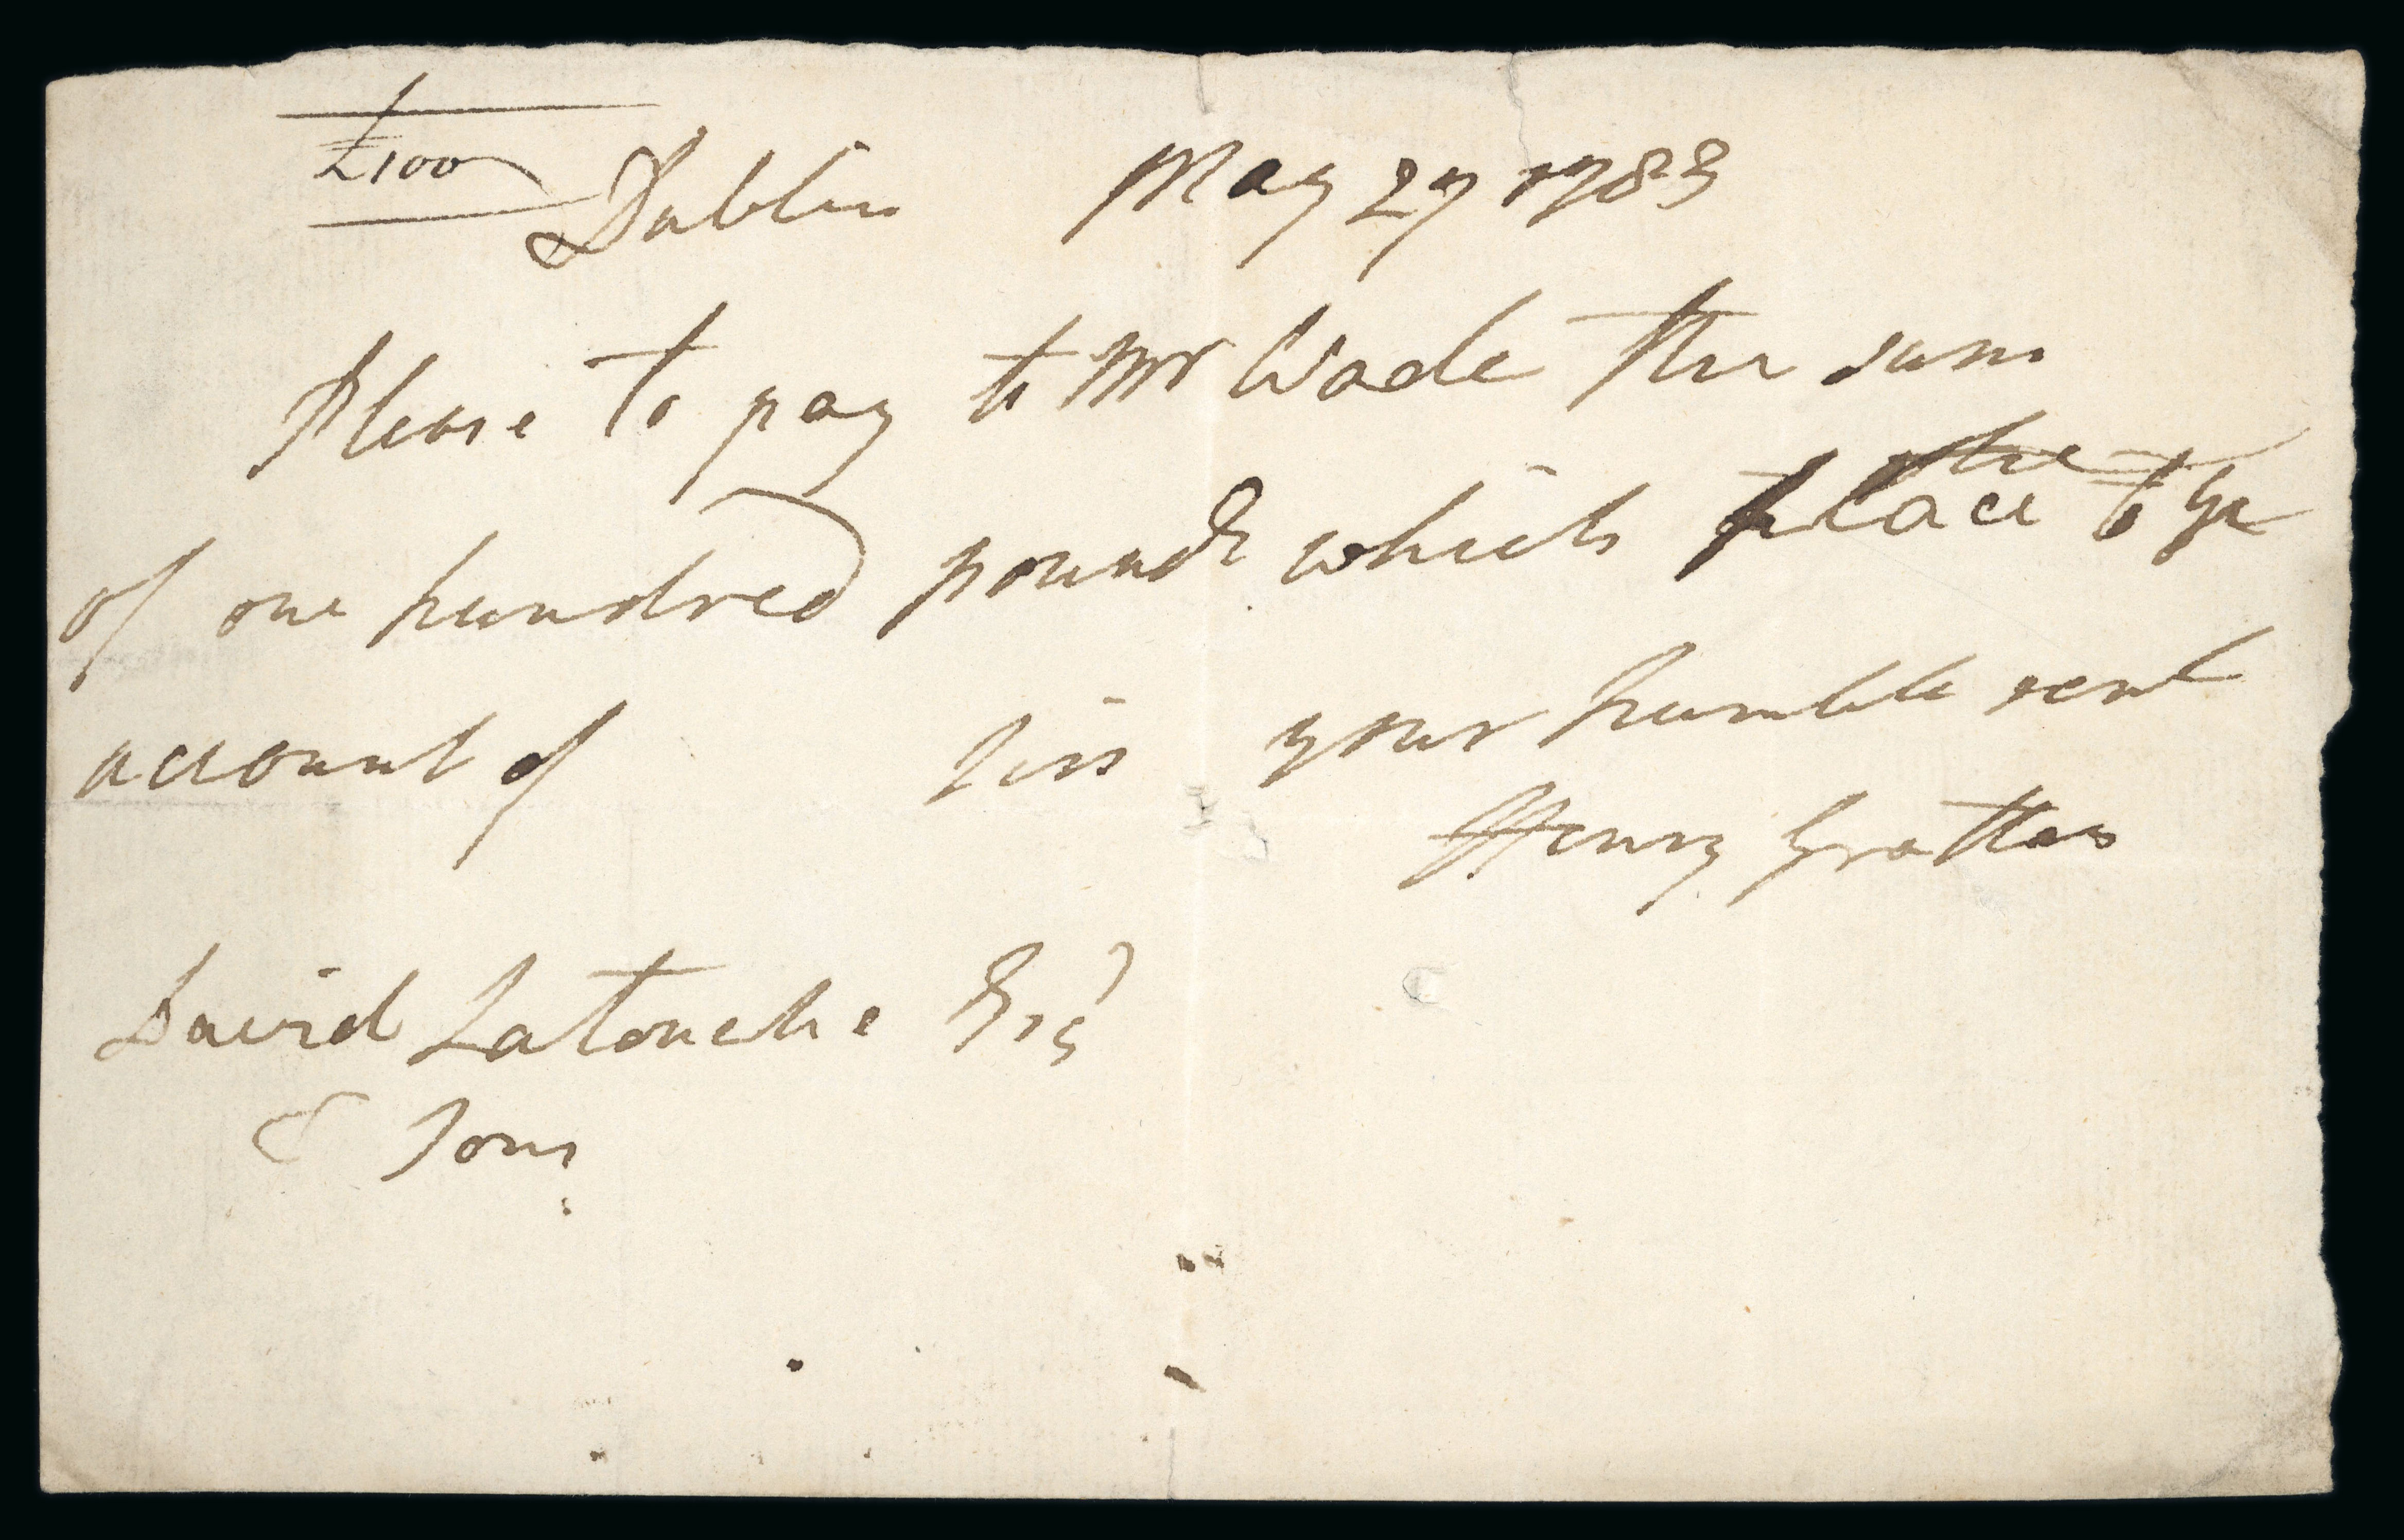 £100
Dublin May 27 1783
Please to pay to Mr Wade the sum
of one hundred pounds which place to the
account of Sirs your humble servt
Henry Grattan
David Latouche Esqr
& Sons